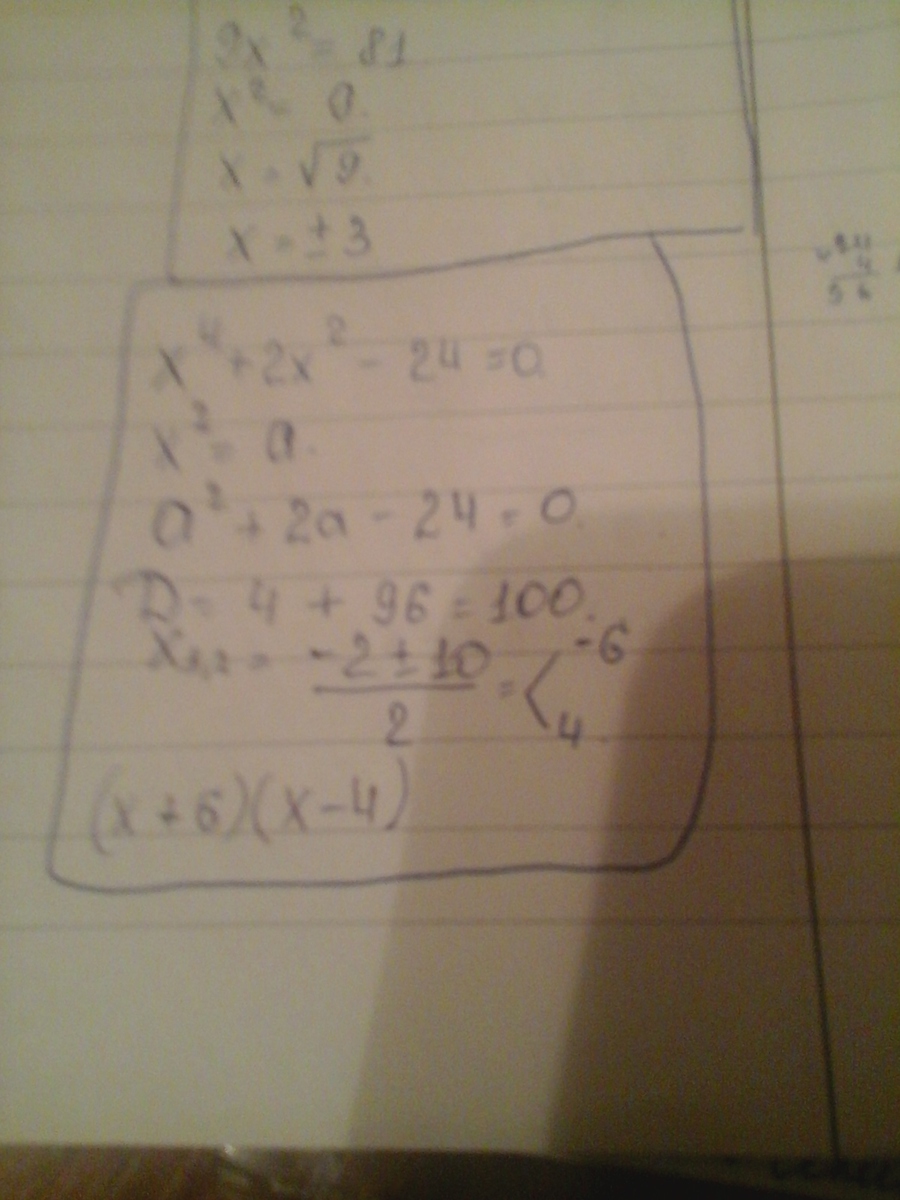 9x² = 81
x² = 9.
x = √9.
x = ± 3
x⁴ + 2x² - 24 = 0
x² = a.
a² + 2a - 24 = 0.
D = 4 + 96 = 100.
x₁,₂ = (-2 ± 10)/2 = < -6
4.
(x + 6)(x - 4)